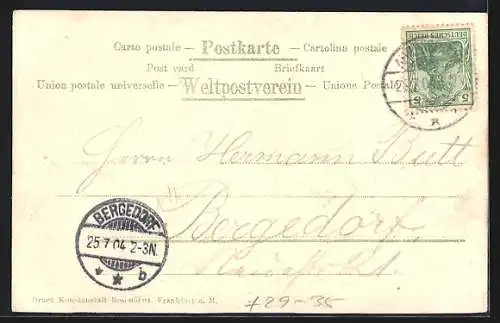 Carte postale — Postkarte — Cartolina postale
Post card Briefkaart
Union postale universelle — Weltpostverein — Unione Postale
DEUTSCHES REICH
5 5
25.7.04
R
Herrn Hermann Butt
Bergedorf
BERGEDORF
25 7 04 2-3N.
* * b
Druck Kunstanstalt Frankfurt a. M.
*29-35